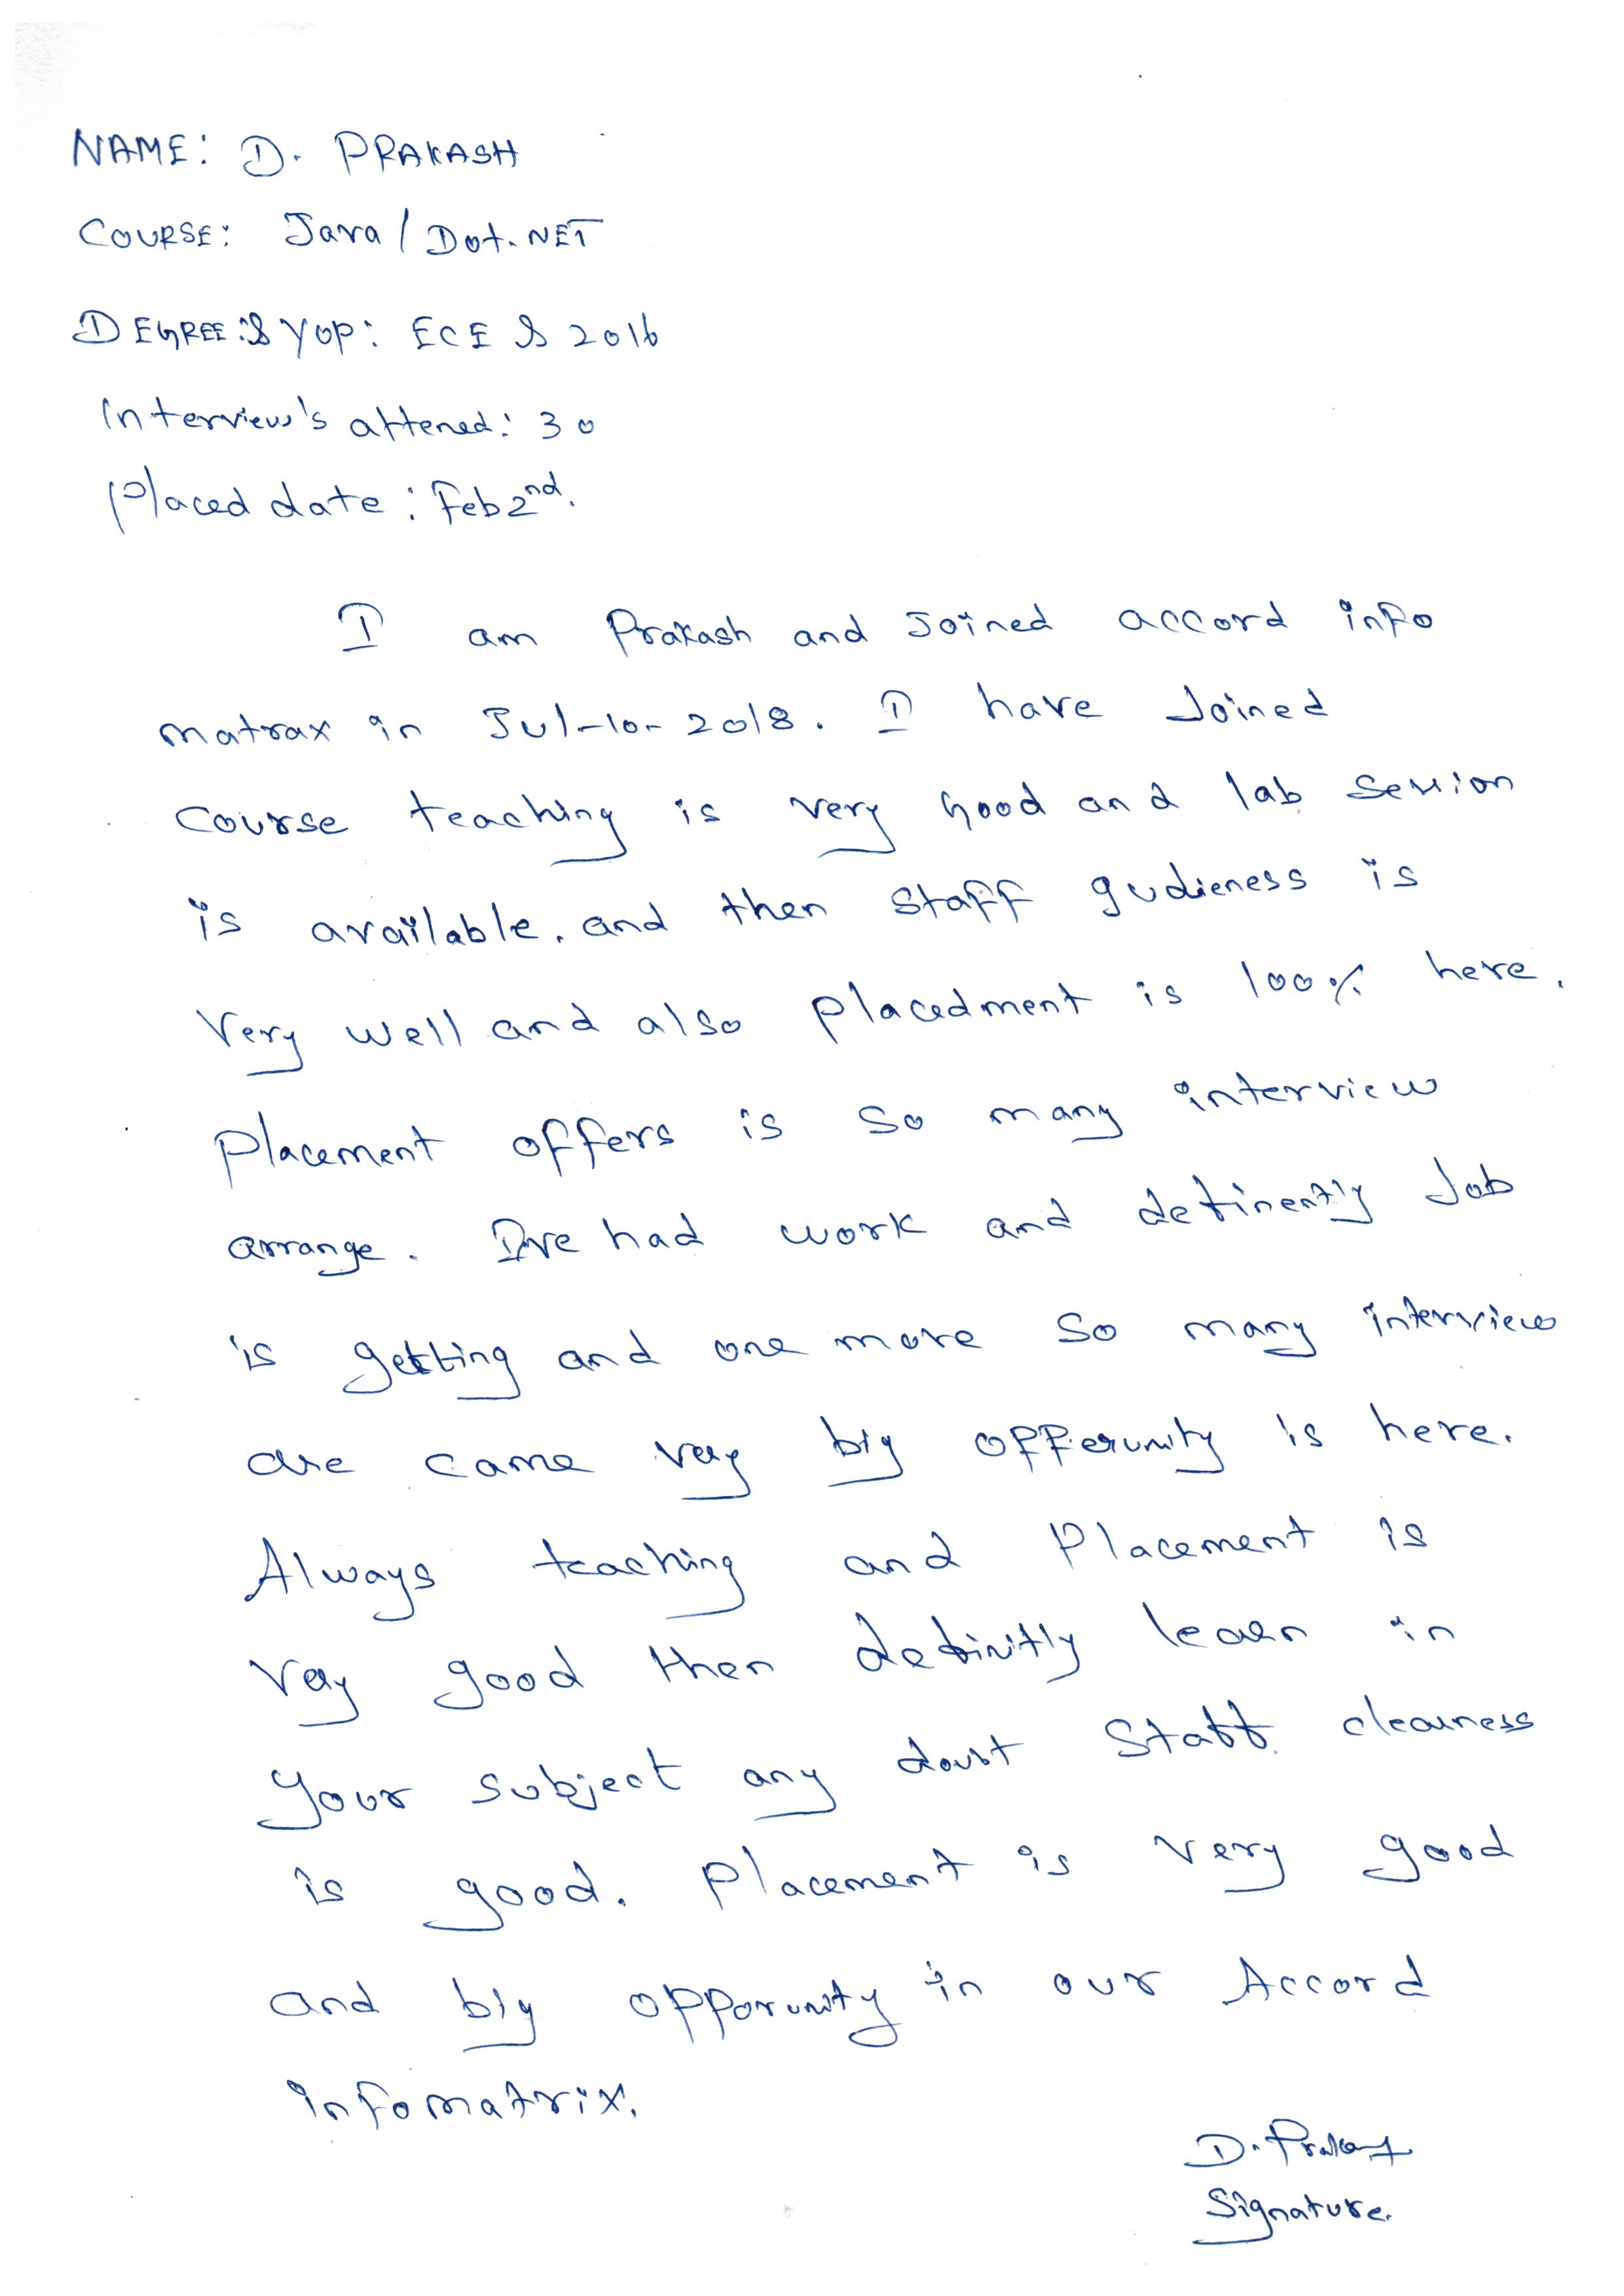 NAME: D. PRAKASH
COURSE: Java / Dot.NET
DEGREE:& YOP: ECE & 2016
Interview's attened: 30
Placed date: Feb 2nd.
I am Prakash and Joined accord info
matrax in Jul-10-2018. I have Joined
Course teaching is very Good and lab Session
is available. and then Staff gudieness is
Very well and also placedment is 100% here.
Placement offers is So many interview
arrange. I've had work and definently Job
is getting and one more So many interview
are came very big opperunity is here.
Always teaching and Placement is
Very good then definitly learn in
Your Subject any doubt Staff clearness
is good. Placement is Very good
and big opporunity in our Accord
infomatrix.
D. Prakash
Signature.